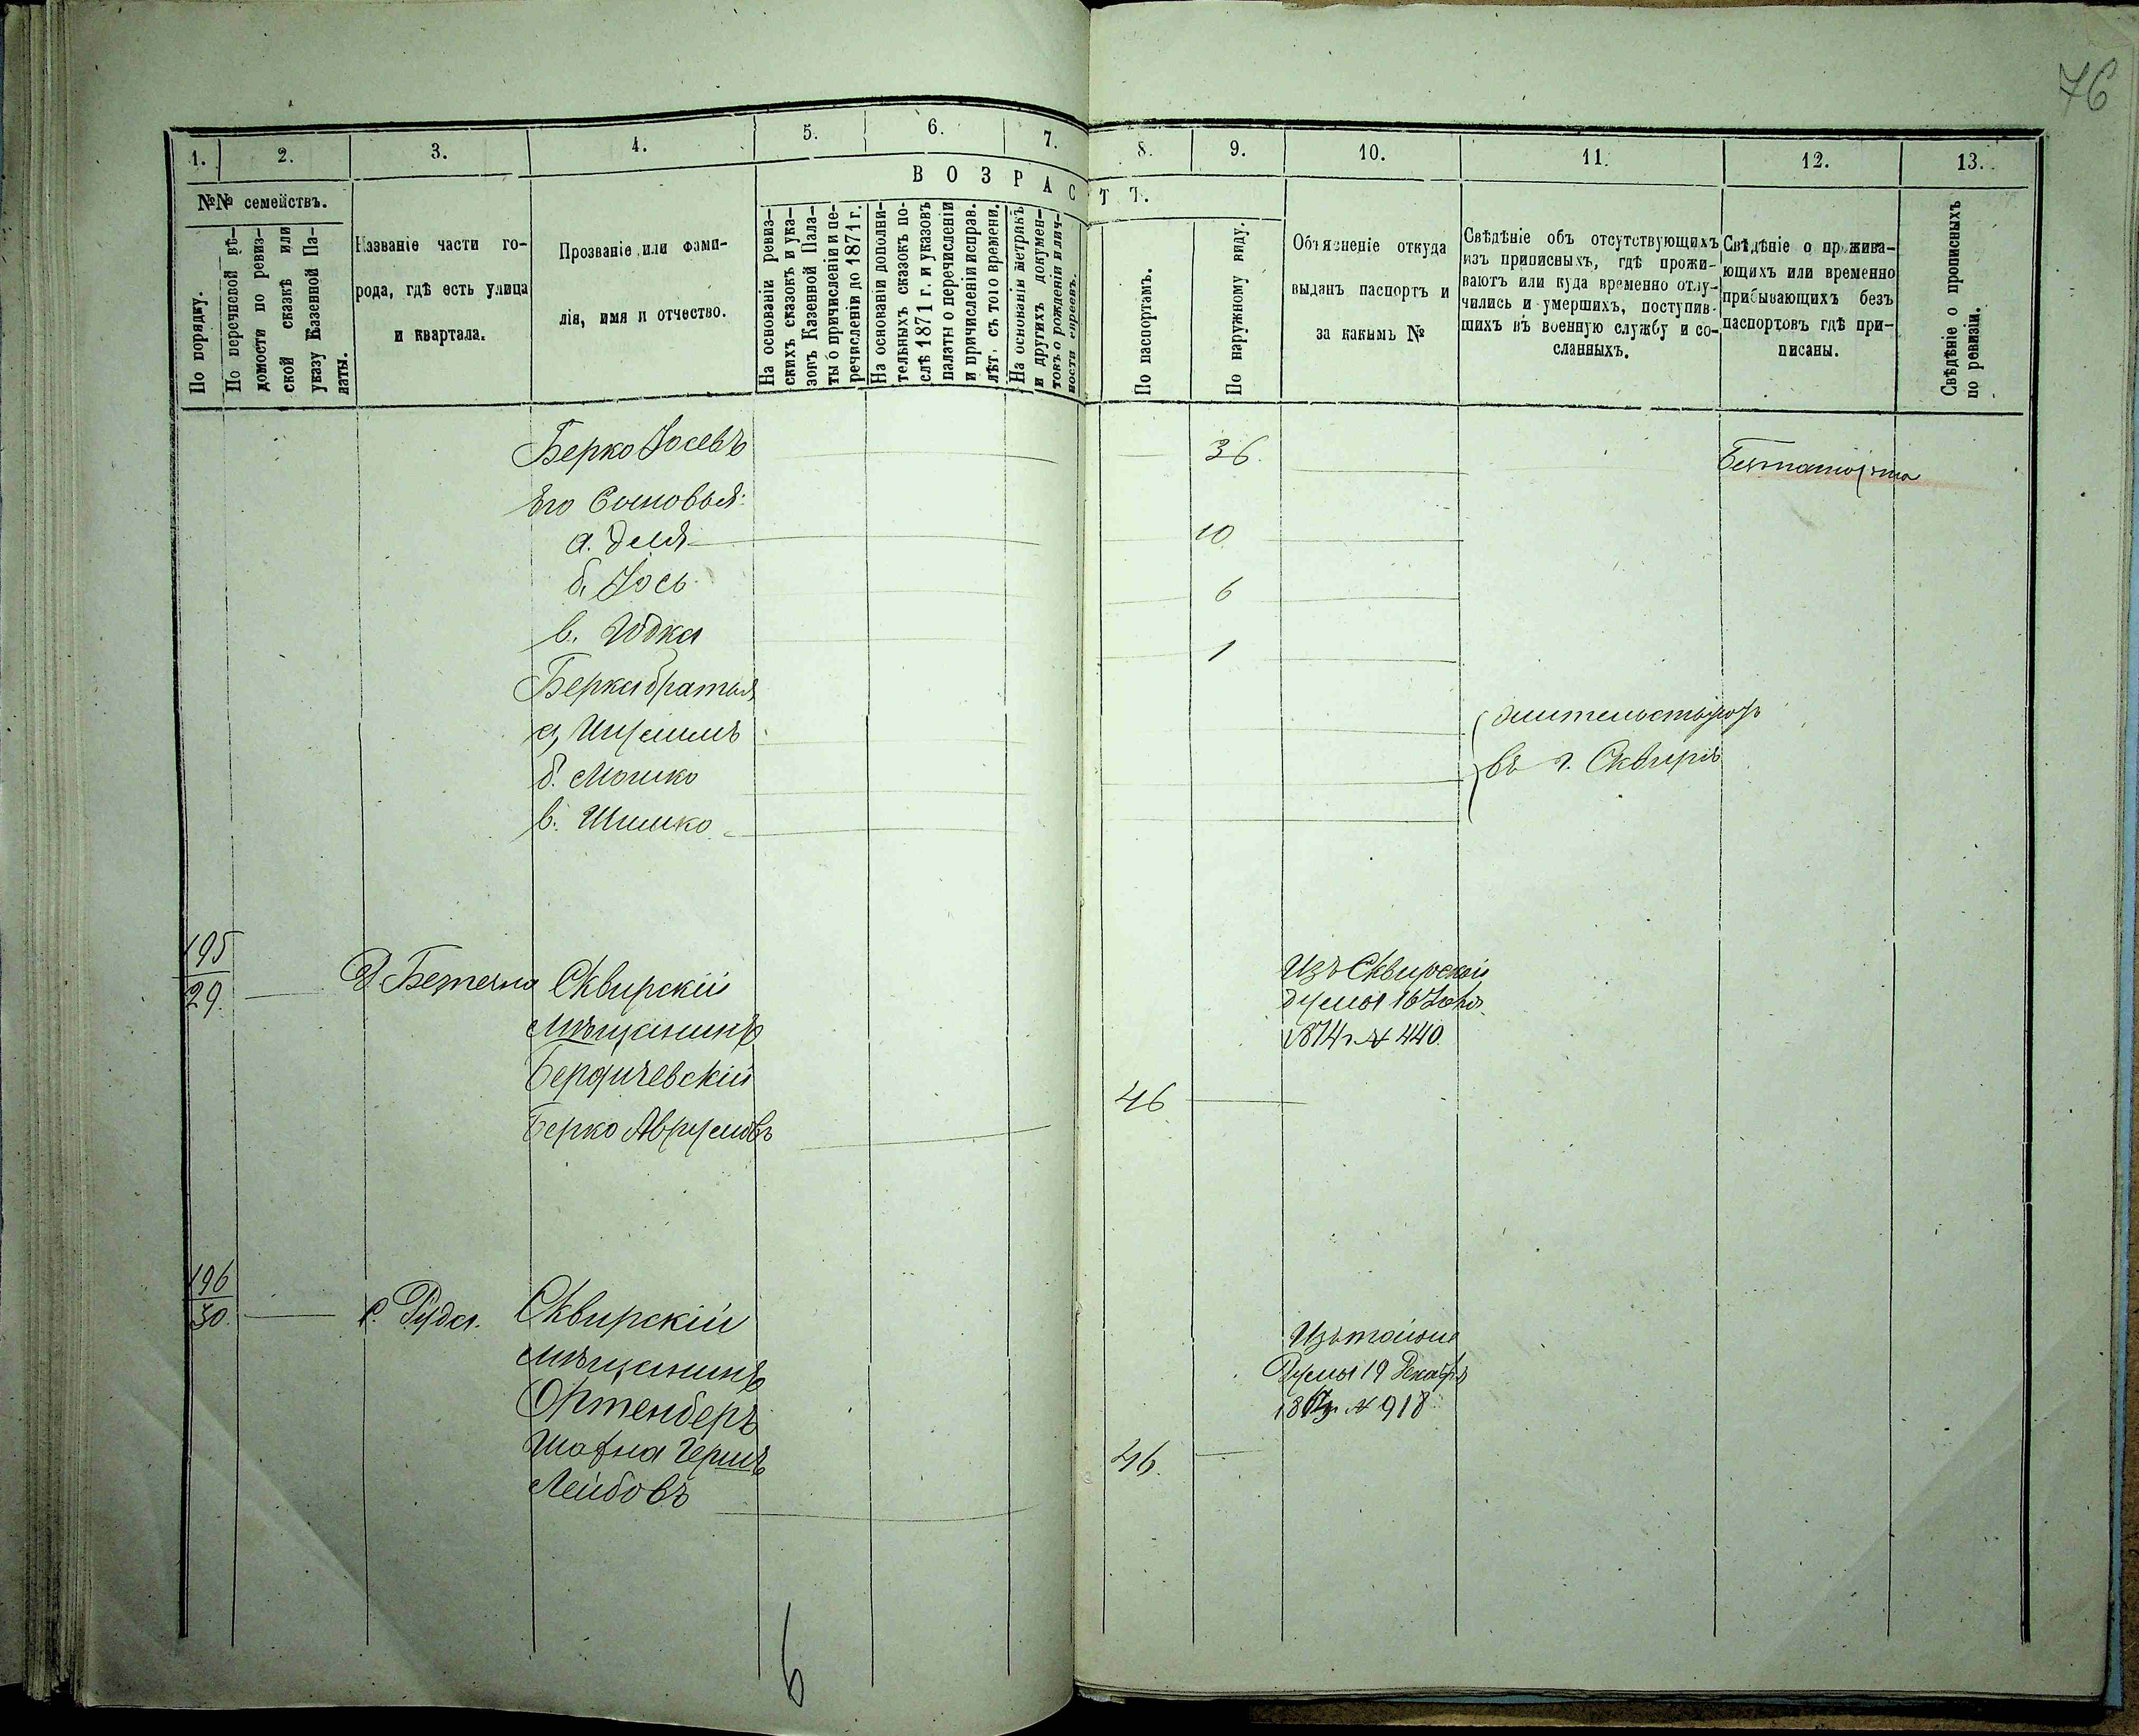 76
1. 2. 3. 4. 5. 6. 7. 8. 9. 10. 11. 12. 13.
ВОЗРАСТЪ.
№№ семействъ.
По порядку.
По перечневой вѣ-
домости по ревиз-
ской сказкѣ или
указу Казенной Па-
латы.
Названіе части го-
рода, гдѣ есть улица
и квартала.
Прозваніе или фами-
лія, имя и отчество.
На основаніи ревиз-
скихъ сказокъ и ука-
зовъ Казенной Пала-
ты о причисленіи и пе-
речисленіи до 1871 г.
На основаніи дополни-
тельныхъ сказокъ по-
слѣ 1871 г. и указовъ
палаты о перечисленіи
и причисленіи исправ.
лѣт. съ того времени.
На основаніи метрикъ
и другихъ докумен-
товъ о рожденіи и лич-
ности евреевъ.
По паспортамъ.
По наружному виду.
Объясненіе откуда
выданъ паспортъ и
за какимъ №
Свѣдѣніе объ отсутствующихъ
изъ приписныхъ, гдѣ прожи-
ваютъ или куда временно отлу-
чились и умершихъ, поступив-
шихъ въ военную службу и со-
сланныхъ.
Свѣдѣніе о прожива-
ющихъ или временно
прибывающихъ безъ
паспортовъ гдѣ при-
писаны.
Свѣдѣніе о прописныхъ
по ревизіи.
Берко Іосевъ 36.
Его Сыновья:
а. 10.
б. Іось 6
в. Юдка 1
Берка братья
а,
б. Мошко въ г. Сквирѣ
в. Шимко
195
29. Сквирскій Изъ Сквирской
мѣщанинъ думы 16
Бердичевскій 1874 г. № 440.
Берко Аврумовъ 46
196
30. с. Рудка. Сквирскій
мѣщанинъ Думы 19 Декабря
Ортенберъ № 918
Шафна Гершъ 46.
Лейбовъ
6